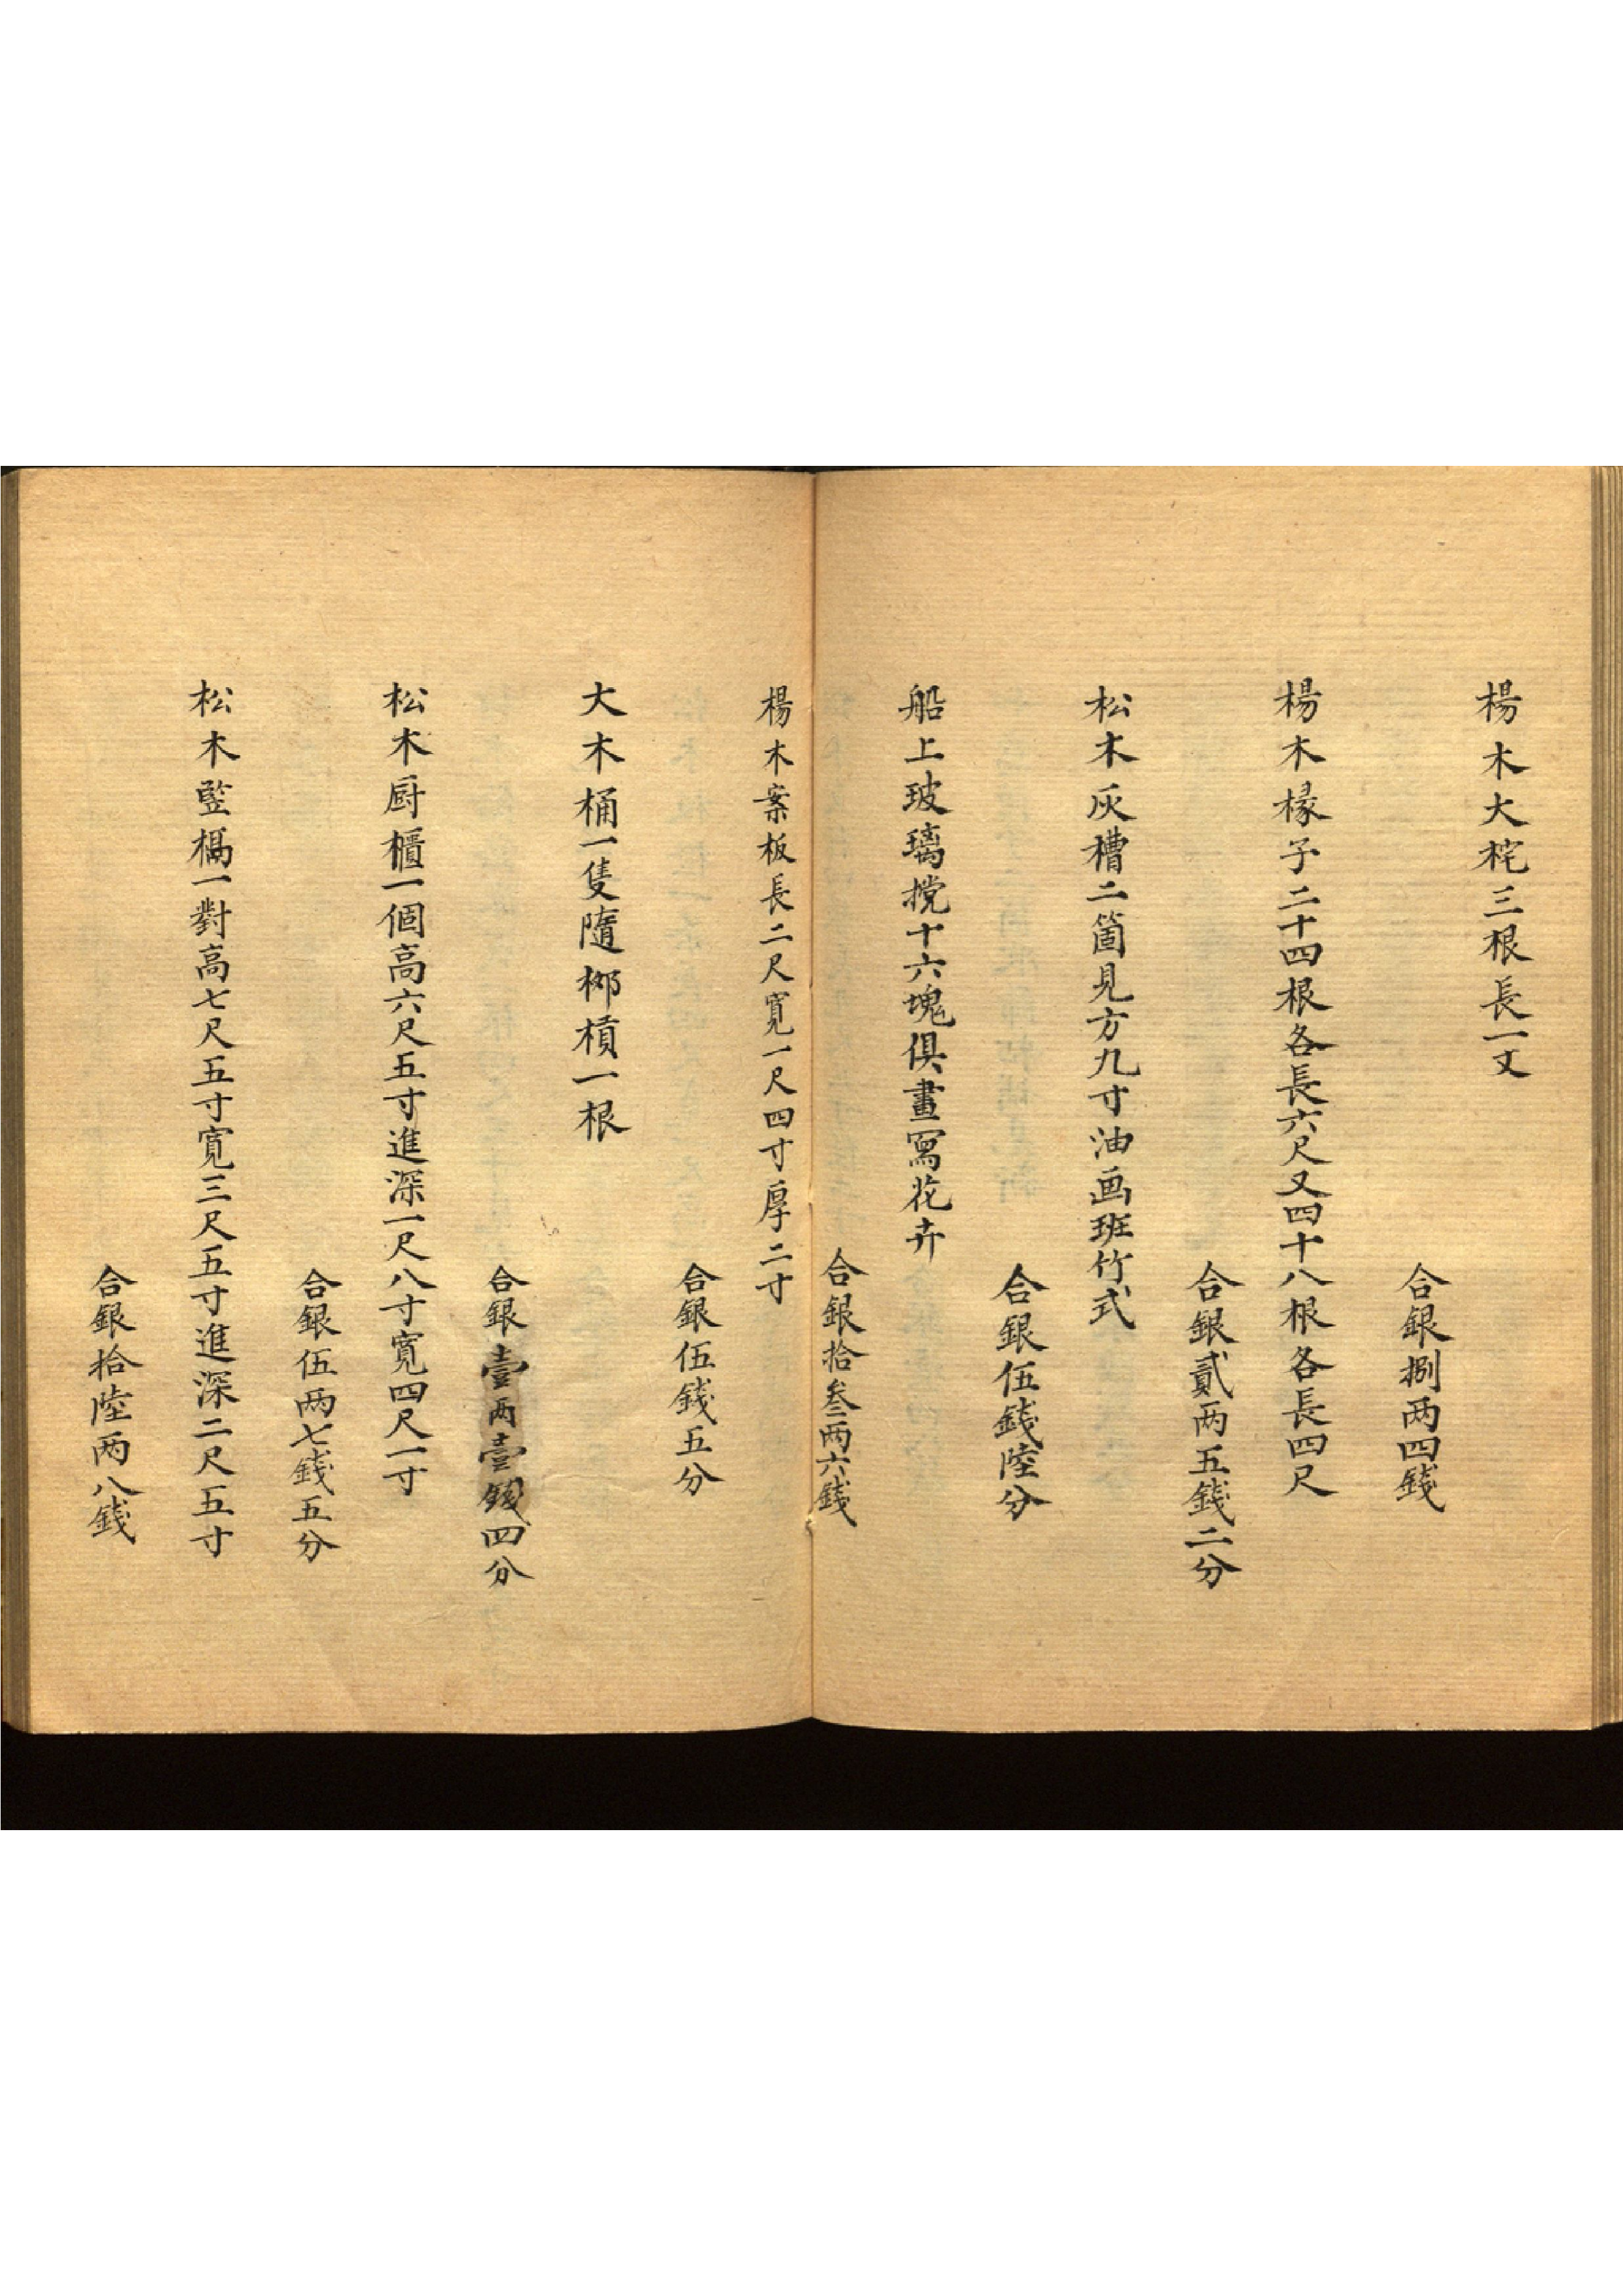 楊木大柁三根長一丈
合銀捌两四錢
楊木椽子二十四根各長六尺又四十八根各長四尺
合銀貳两五錢二分
松木灰槽二箇見方九寸油画班竹式
合銀伍錢陸分
船上玻璃㨪十六塊俱畫寫花卉
合銀拾叁两六錢
楊木案板長二尺寬一尺四寸厚二寸
合銀伍錢五分
大木桶一隻隨榔槓一根
合銀壹两壹錢四分
松木厨櫃一個高六尺五寸進深一尺八寸寬四尺一寸
合銀伍两七錢五分
松木竪槅一對高七尺五寸寬三尺五寸進深二尺五寸
合銀拾陸两八錢